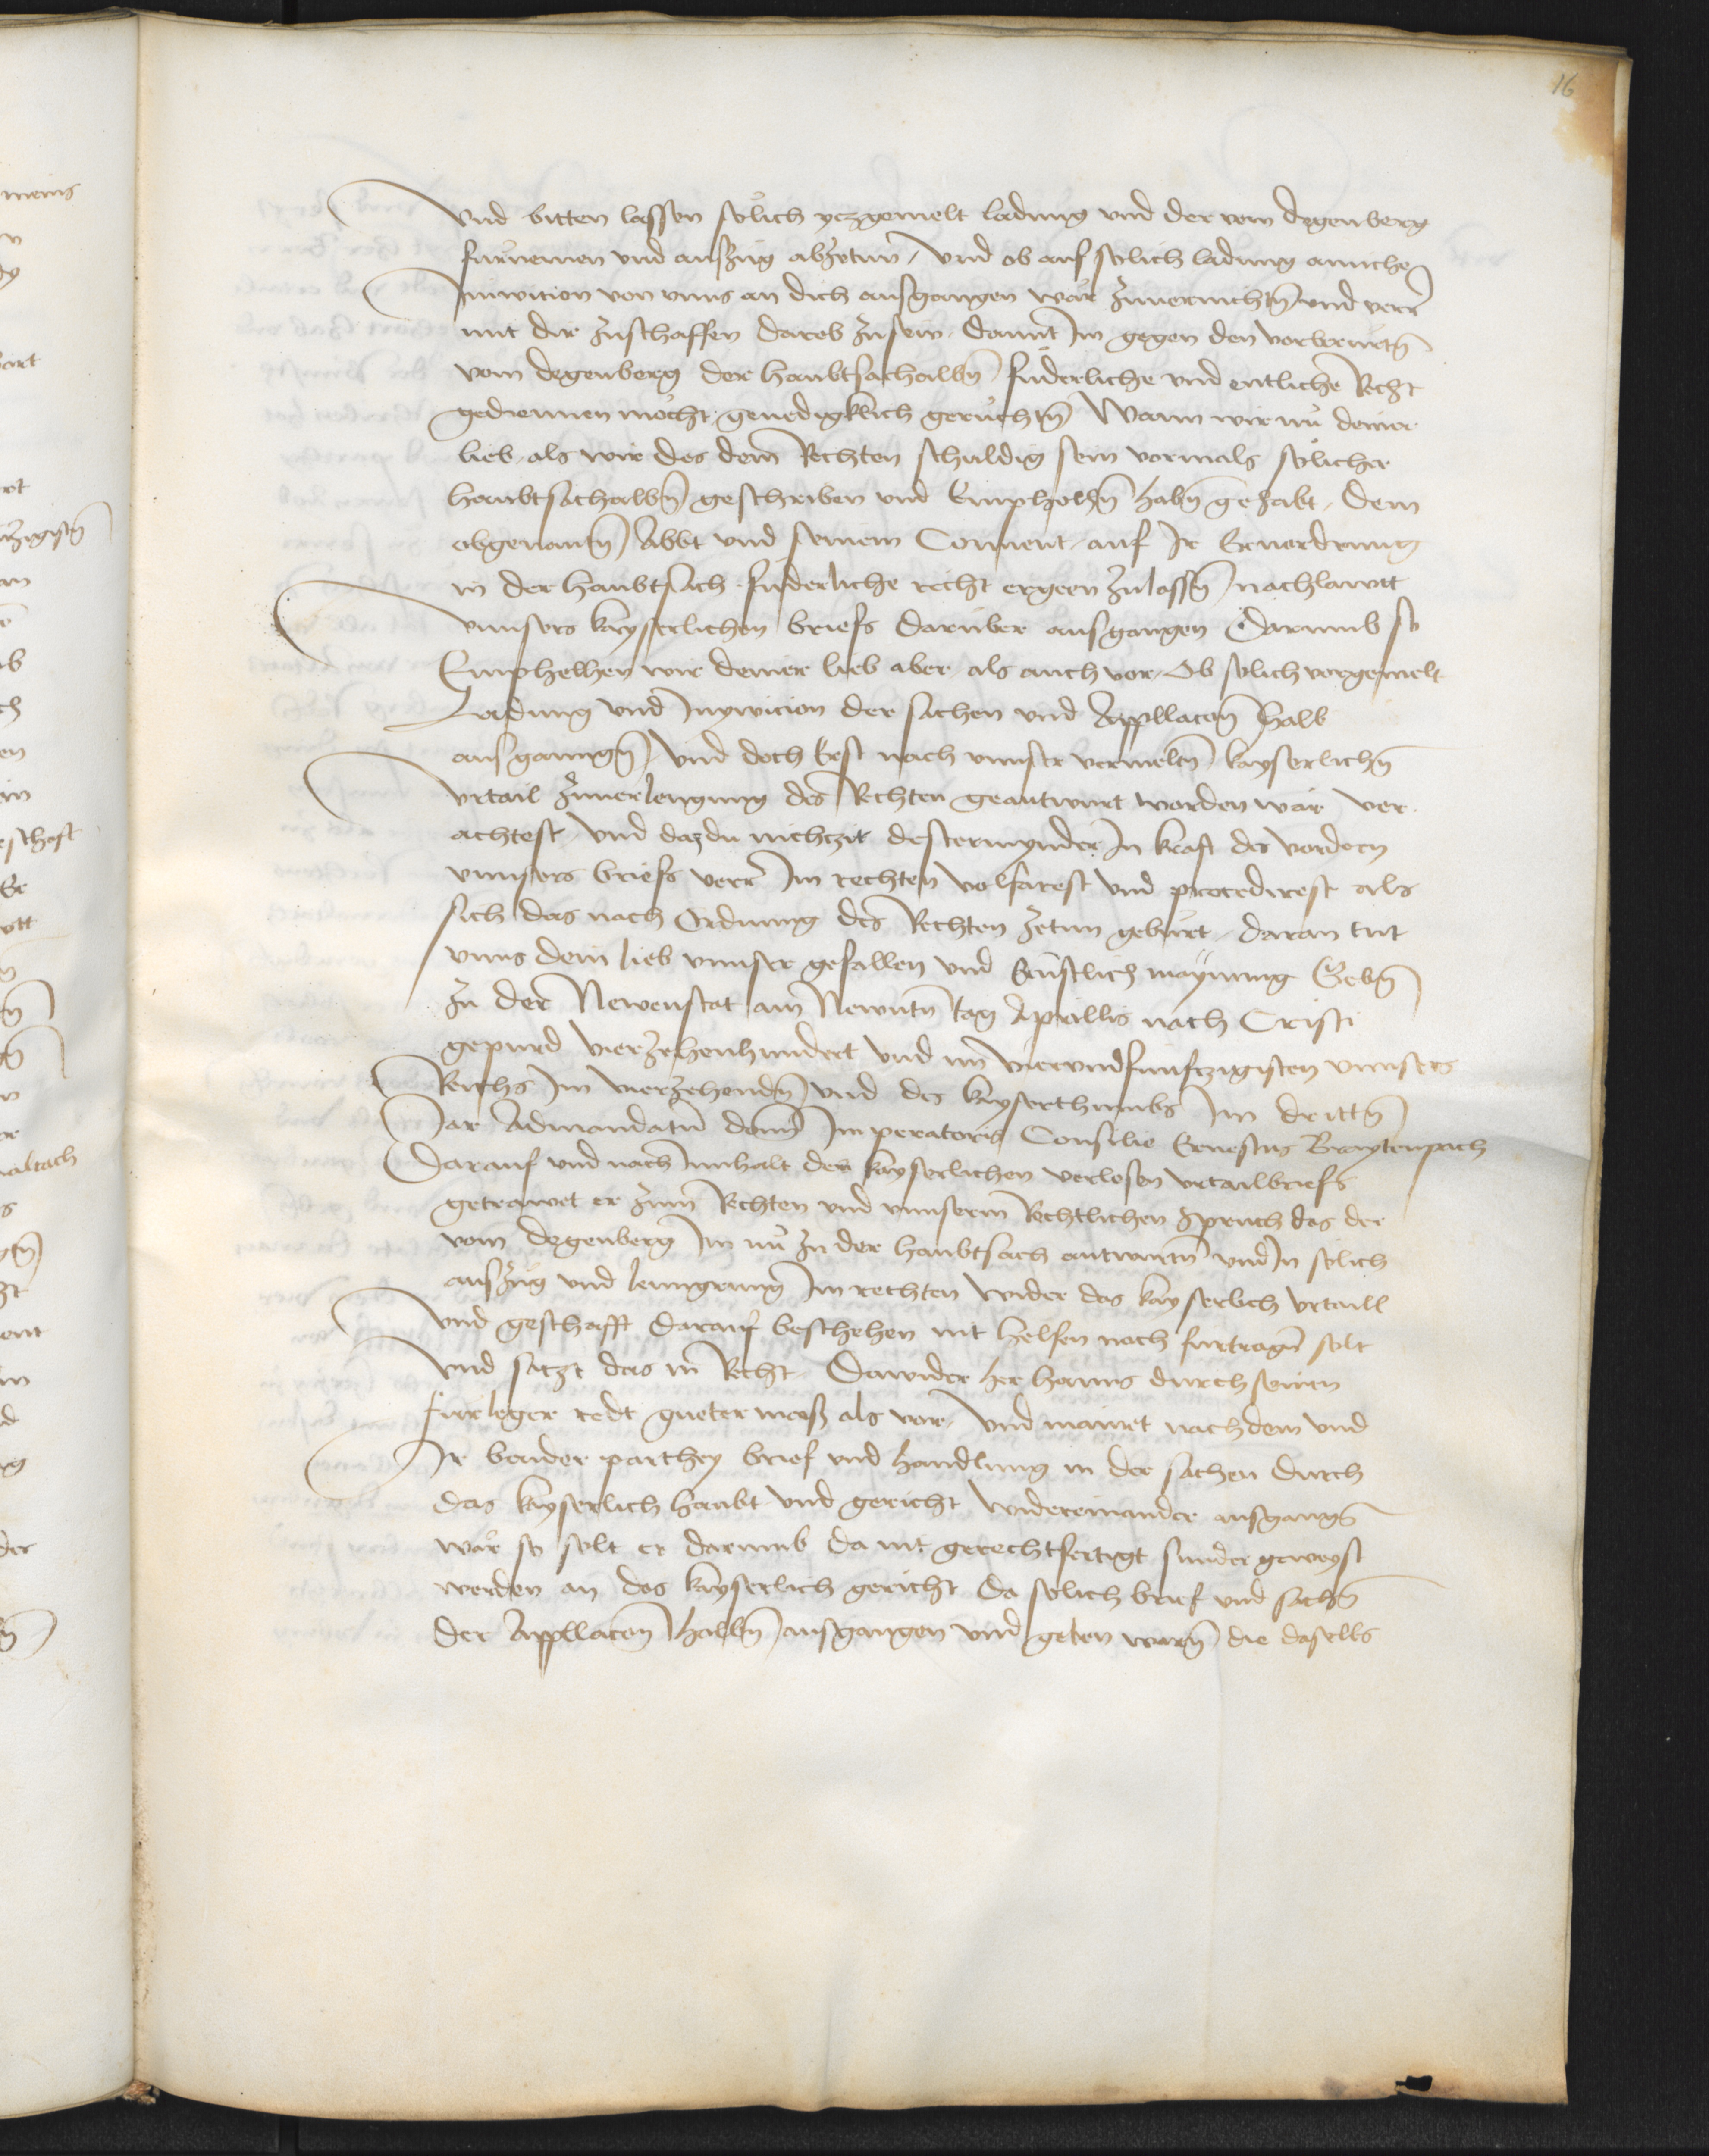 16
Vnd bitten lassen solich yczgemelt ladung vnd der vom degenberg
furnemen vnd auszug abzetun / vnd ob auf solich ladung ainiche
Inivicion von vnns an dich ausgangen wår zuuernichtn̄ vnd verr̄
mit dir zuschaffen darob zusein damit Im gegen den vorberurtn̄
vom degenberg der haubtsachalbn̄ fuderliche vnd entliche Recht
gediennen möcht genedigklich geruchtn̄ Wann wir nu deiner
lieb als wir des dem Rechten schuldig sein vormals solicher
haubtsachalbn̄ geschriben vnd Emphelhn̄ habn̄ gehabt / dem
obgenantn̄ Abbt vnd seinem Conuent auf Ir Eruordrung
in der haubtsach fuderliche recht ergeen zulassn̄ nachlawtt
vnnsers kayserlichen briefs daruber ausgangen Darumb so
Emphelhen wir deiner lieb aber als auch vor / Ob solich vorgemelt
Ladung vnd Inyvicion der sachen vnd Appllacon̄ halb
ausgangn̄ vnd doch Erst nach vnnser vermeltn̄ kayserlichn̄
vrtail zuuerlengung des Rechten geantwurt worden wår ver
achtest vnd daz du nichtzit destermynder In kraft des vordern
vnnsers briefs verr̄ Im rechten volfarest vnd procedirest als
sich das nach Ordnung des Rechten zetun geburt / daran tut
vnns dein lieb vnnser gefallen vnd Ernstlich maynung Gebn̄
zu der Newenstat am Newntn̄ tag Aprillis nach Cristi
gepurd vierzehenhundert vnd im̄ viervndfunfczigisten vnnsers
Reichs Im vierzehendn̄ vnd des kayserthumbs Im drittn̄
Jar Admandatū domī Imperatoris Consilio Ernestus Braytenpach
Darauf vnd nach Innhalt des kayserlichen verlosen vrtailbriefs
getrawet er zum Rechten vnd vnnserm Rechtlichen spruch das der
vom degenberg Im nu zu der haubtsach antwurtn̄ vnd In solich
auszug vnd lenngrung Im rechten wider das kayserlich vrtaill
vnd geschafft darauf beschehen nit helfen noch furtragn̄ solt
vnd satzt das in̄ Recht / Dawider her hanns durch seinen
furleger redt gueter mass als vor / vnd mainet nachdem vnd
Ir beider parthey brief vnd handlung in der sachen durch
das kayserlich haubt vnd gericht widereinander ausgangn̄
wår so solt er darumb da nit gerechtfertigt sunder geweyst
werden an das kayserlich gericht da solich brief vnd sachn̄
der Appllacon̄ halbn̄ ausgangen vnd geben warn̄ die daselbs